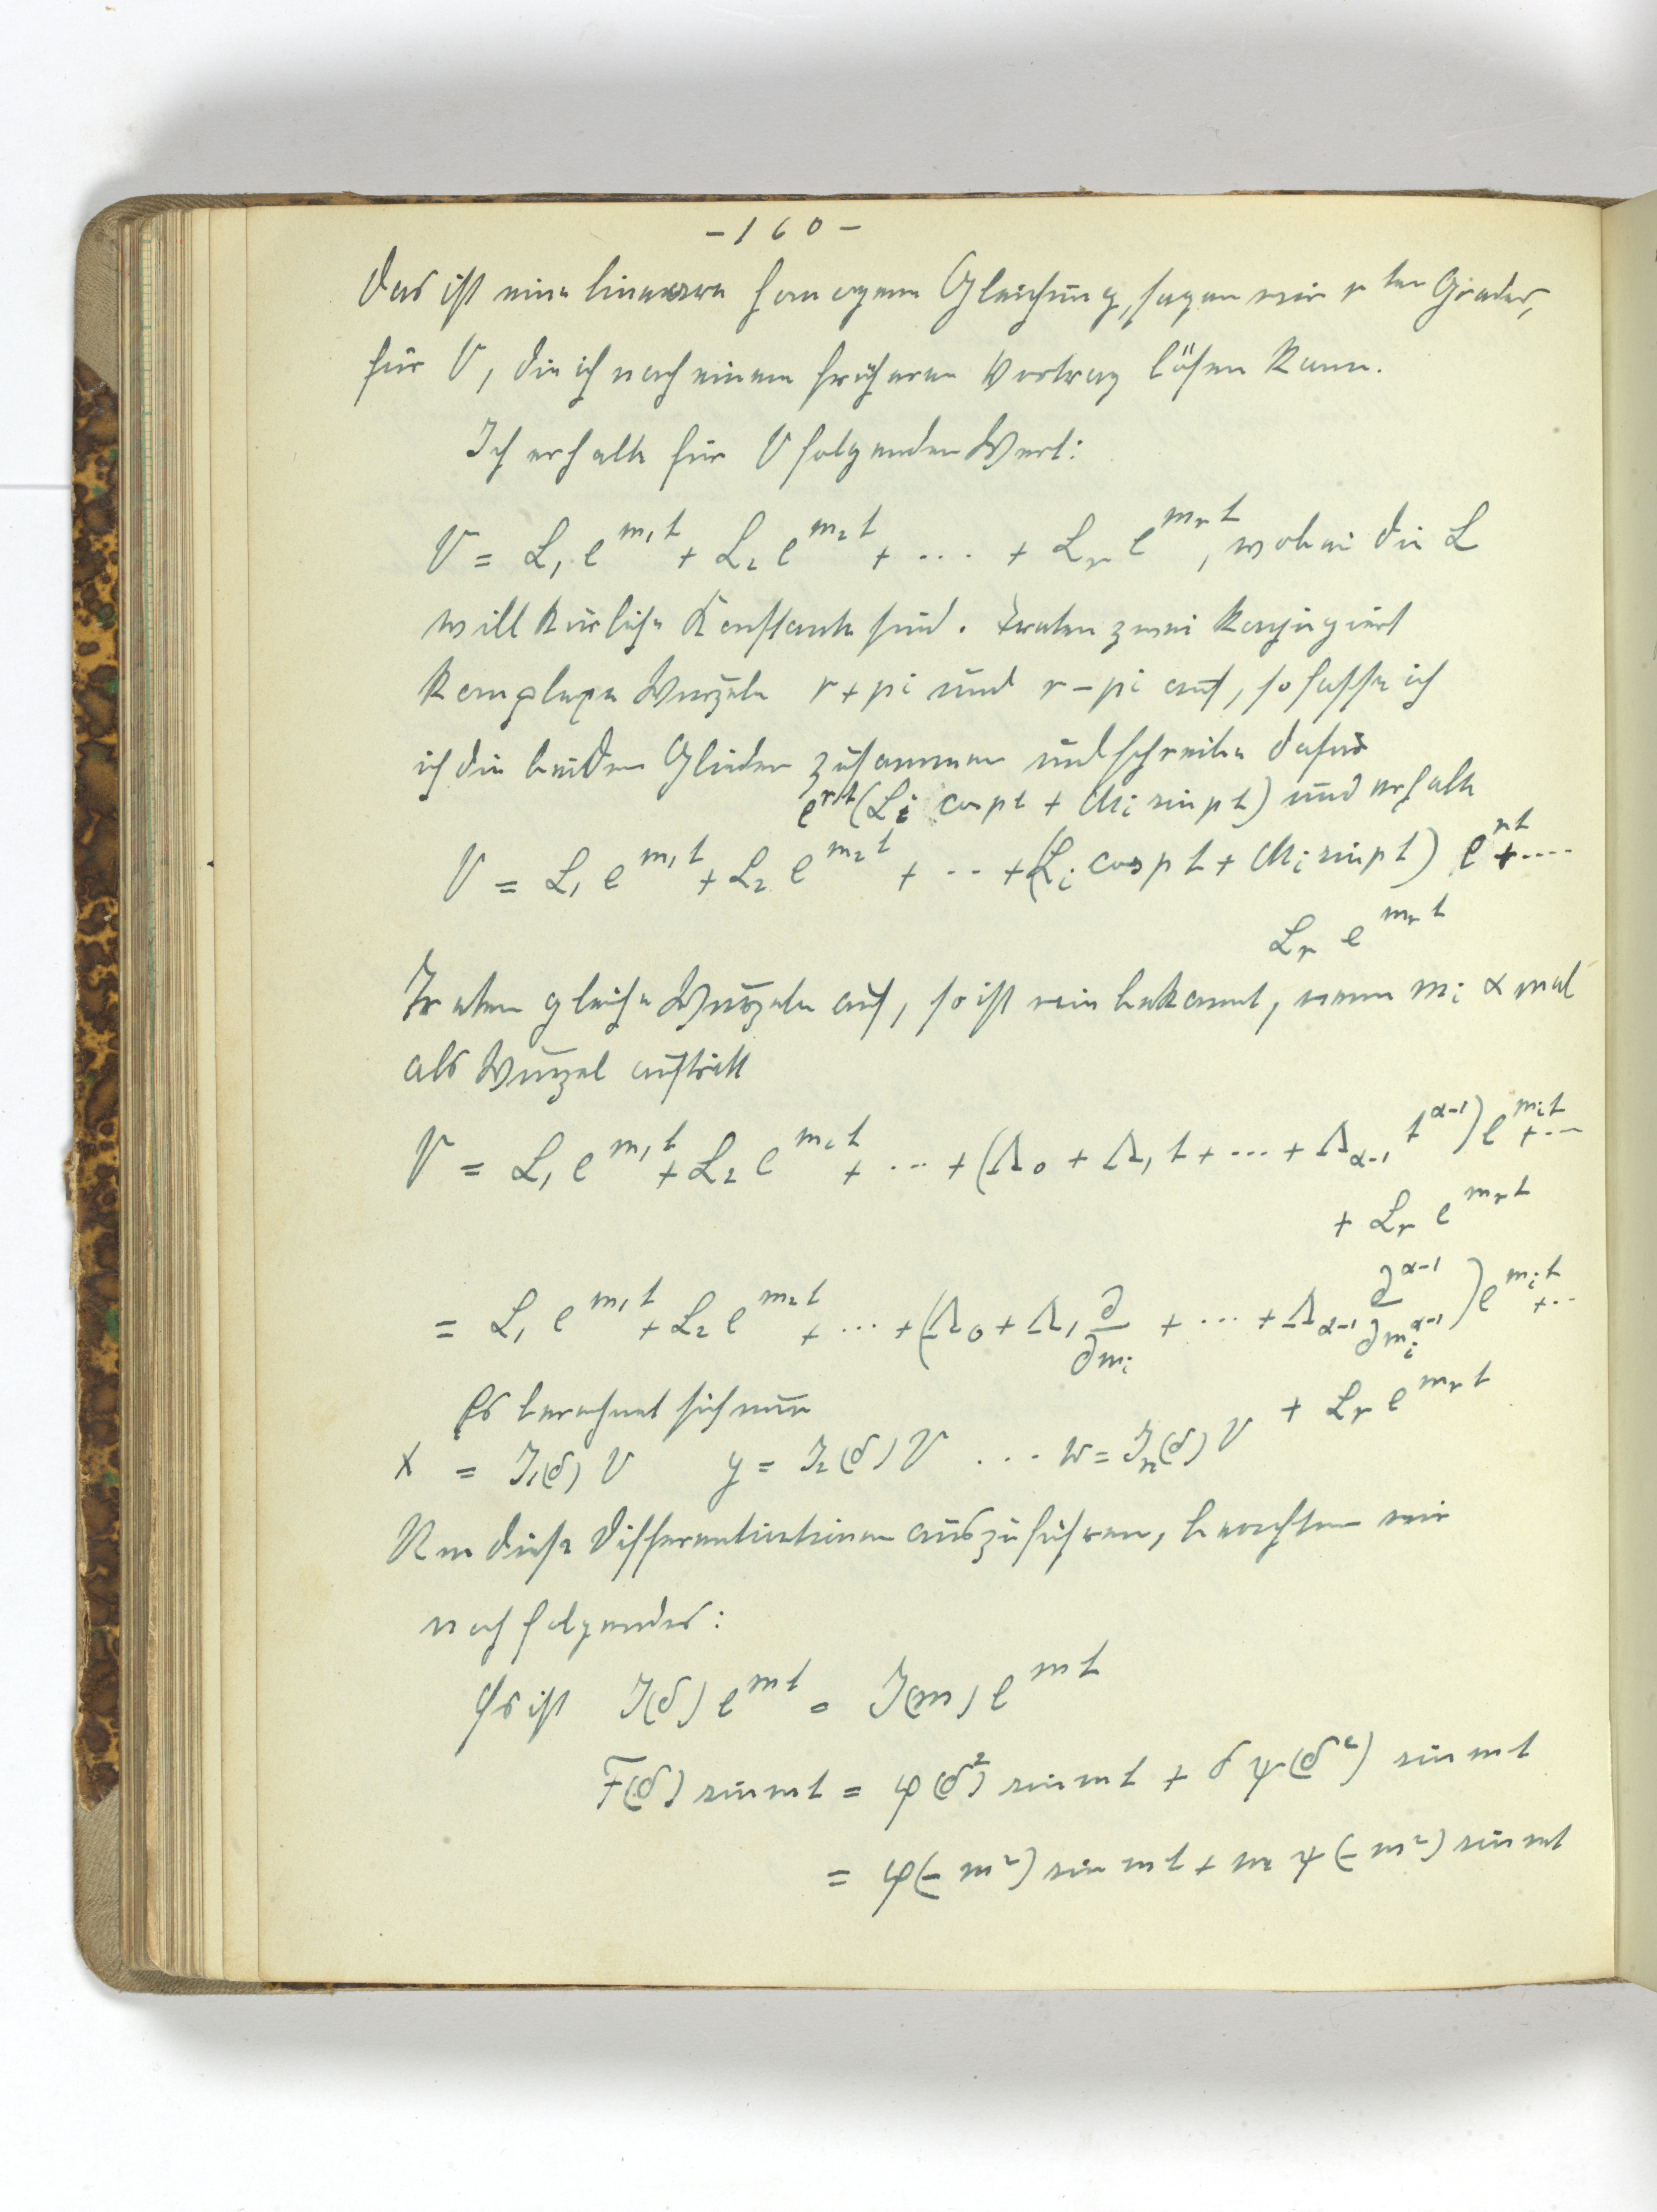 - 160 -
Das ist eine lineare homogene Gleichung, sagen wir r ten Grades,
für V, die ich nach einem früheren Vortrag lösen kann.
Ich erhalte für V folgenden Wert:
V = L₁ e^{m₁t} + L₂ e^{m₂t} + ... + L_r e^{m_r t}, wobei die L
willkürliche Konstante sind. Treten zwei konjugiert
komplexe Wurzeln r + pi und r - pi auf, so fasse ich
ich die beiden Glieder zusammen und schreibe dafür
e^{rt}(L_i cos pt + M_i sin pt) und erhalte
V = L₁ e^{m₁t} + L₂ e^{m₂t} + ... + (L_i cos pt + M_i sin pt) e^{rt} + ....
L_r e^{m_r t}
Treten gleiche Wurzeln auf, so ist wie bekannt, wenn m_i α mal
als Wurzel auftritt
V = L₁ e^{m₁t} + L₂ e^{m₂t} + ... + (Λ₀ + Λ₁ t + ... + Λ_{α-1} t^{α-1}) e^{m_i t} + ...
+ L_r e^{m_r t}
= L₁ e^{m₁t} + L₂ e^{m₂t} + ... + (Λ₀ + Λ₁ ∂/∂m_i + ... + Λ_{α-1} ∂^{α-1}/∂m_i^{α-1}) e^{m_i t} + ...
+ L_r e^{m_r t}
Es berechnet sich nun
x = J₁(δ) V y = J₂(δ) V ... w = J_n(δ) V
Um diese Differentiationen auszuführen, beachten wir
noch folgendes:
Es ist J(δ) e^{mt} = J(m) e^{mt}
F(δ) sin mt = φ(δ²) sin mt + δ ψ(δ²) sin mt
= φ(-m²) sin mt + m ψ(-m²) sin mt